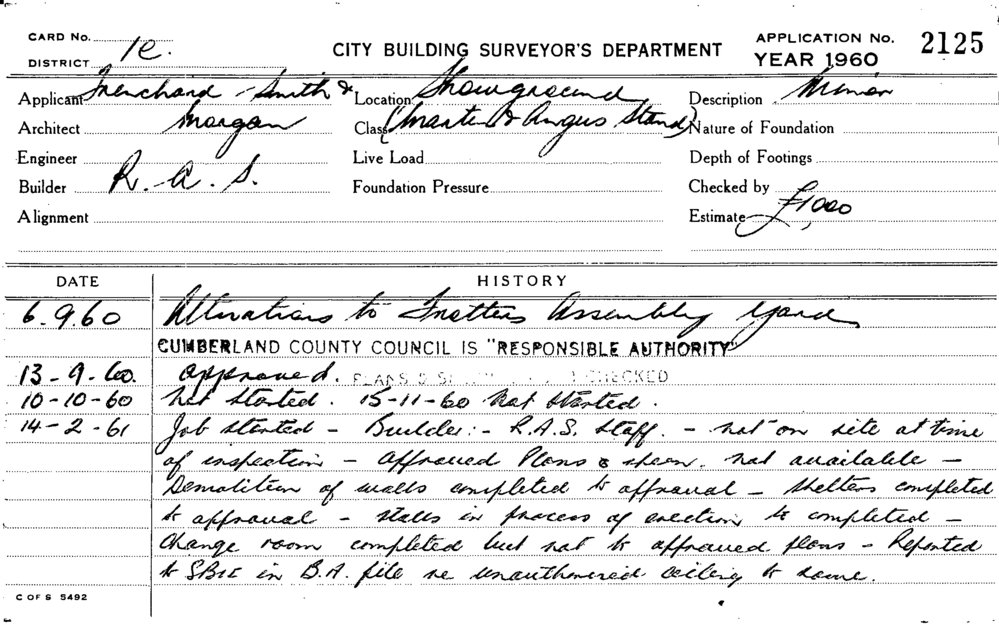 CARD No. 1e.
DISTRICT
CITY BUILDING SURVEYOR'S DEPARTMENT
APPLICATION No. 2125
YEAR 1960
Applicant Trenchard - Smith &
Location Showground
Description Minor
Architect Morgan
Class (Martin & Angus Stand)
Nature of Foundation
Engineer
Live Load
Depth of Footings
Builder R.A.S.
Foundation Pressure
Checked by
Alignment
Estimate £1,000
DATE
HISTORY
6.9.60 Alterations to Trotters Assembly Yard
CUMBERLAND COUNTY COUNCIL IS "RESPONSIBLE AUTHORITY"
13-9-60. Approved. PLANS & CHECKED
10-10-60 Not started. 15-11-60 Not started.
14-2-61 Job started - Builder:- R.A.S. Staff. - not on site at time
of inspection - approved Plans & sheen. not available -
Demolition of walls completed to approval - Shelters completed
to approval - stalls in process of erection to completed -
Change room completed but not to approved plans - Reported
to SBIE in B.A. file re unauthorised ceiling to same.
C OF S 5492